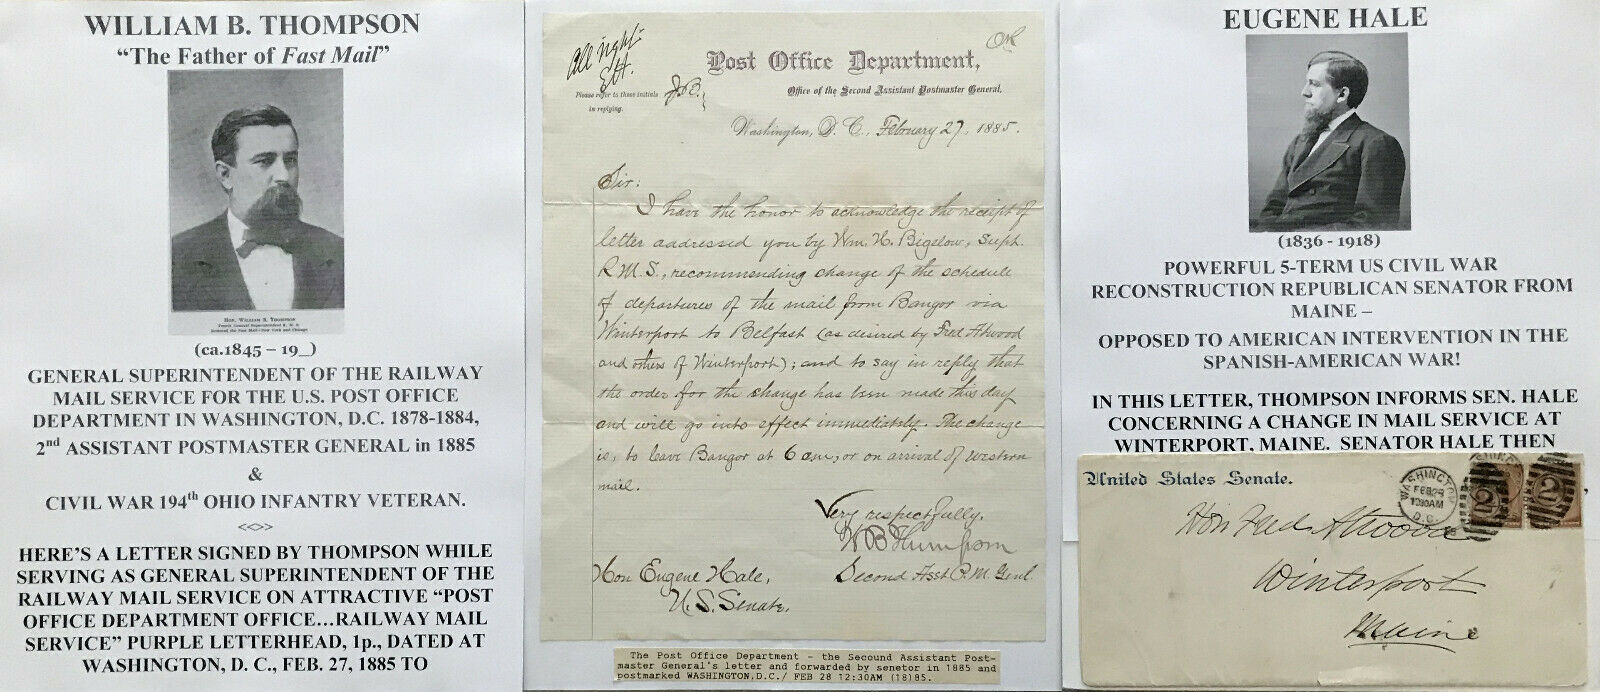 WILLIAM B. THOMPSON
“The Father of Fast Mail”
HON. WILLIAM B. THOMPSON
(ca.1845 – 19_)
GENERAL SUPERINTENDENT OF THE RAILWAY
MAIL SERVICE FOR THE U.S. POST OFFICE
DEPARTMENT IN WASHINGTON, D.C. 1878-1884,
2nd ASSISTANT POSTMASTER GENERAL in 1885
&
CIVIL WAR 194th OHIO INFANTRY VETERAN.
<<>>
HERE'S A LETTER SIGNED BY THOMPSON WHILE
SERVING AS GENERAL SUPERINTENDENT OF THE
RAILWAY MAIL SERVICE ON ATTRACTIVE “POST
OFFICE DEPARTMENT OFFICE…RAILWAY MAIL
SERVICE” PURPLE LETTERHEAD, 1p., DATED AT
WASHINGTON, D. C., FEB. 27, 1885 TO
All right
Post Office Department,
Office of the Second Assistant Postmaster General,
Please refer to these initials
in replying.
Washington, D. C., February 27, 1885.
Sir:
I have the honor to acknowledge the receipt of
letter addressed you by Wm. H. Bigelow, Supt.
R.M.S., recommending change of the schedule
of departures of the mail from Bangor via
Winterport to Belfast (as desired by Fred Atwood
and others of Winterport); and to say in reply that
the order for the change has been made this day
and will go into effect immediately. The change
is, to leave Bangor at 6 am, or on arrival of western
mail.
Very respectfully,
W B Thompson
Second Asst P. M. Genl.
Hon Eugene Hale,
U. S. Senate.
The Post Office Department - the Secound Assistant Post-
master General's letter and forwarded by senetor in 1885 and
postmarked WASHINGTON,D.C./ FEB 28 12:30AM (18)85.
EUGENE HALE
(1836 - 1918)
POWERFUL 5-TERM US CIVIL WAR
RECONSTRUCTION REPUBLICAN SENATOR FROM
MAINE –
OPPOSED TO AMERICAN INTERVENTION IN THE
SPANISH-AMERICAN WAR!
IN THIS LETTER, THOMPSON INFORMS SEN. HALE
CONCERNING A CHANGE IN MAIL SERVICE AT
WINTERPORT, MAINE. SENATOR HALE THEN
United States Senate.
WASHINGTON
D.C.
2
2
Hon Fred Atwood
Winterport
Maine